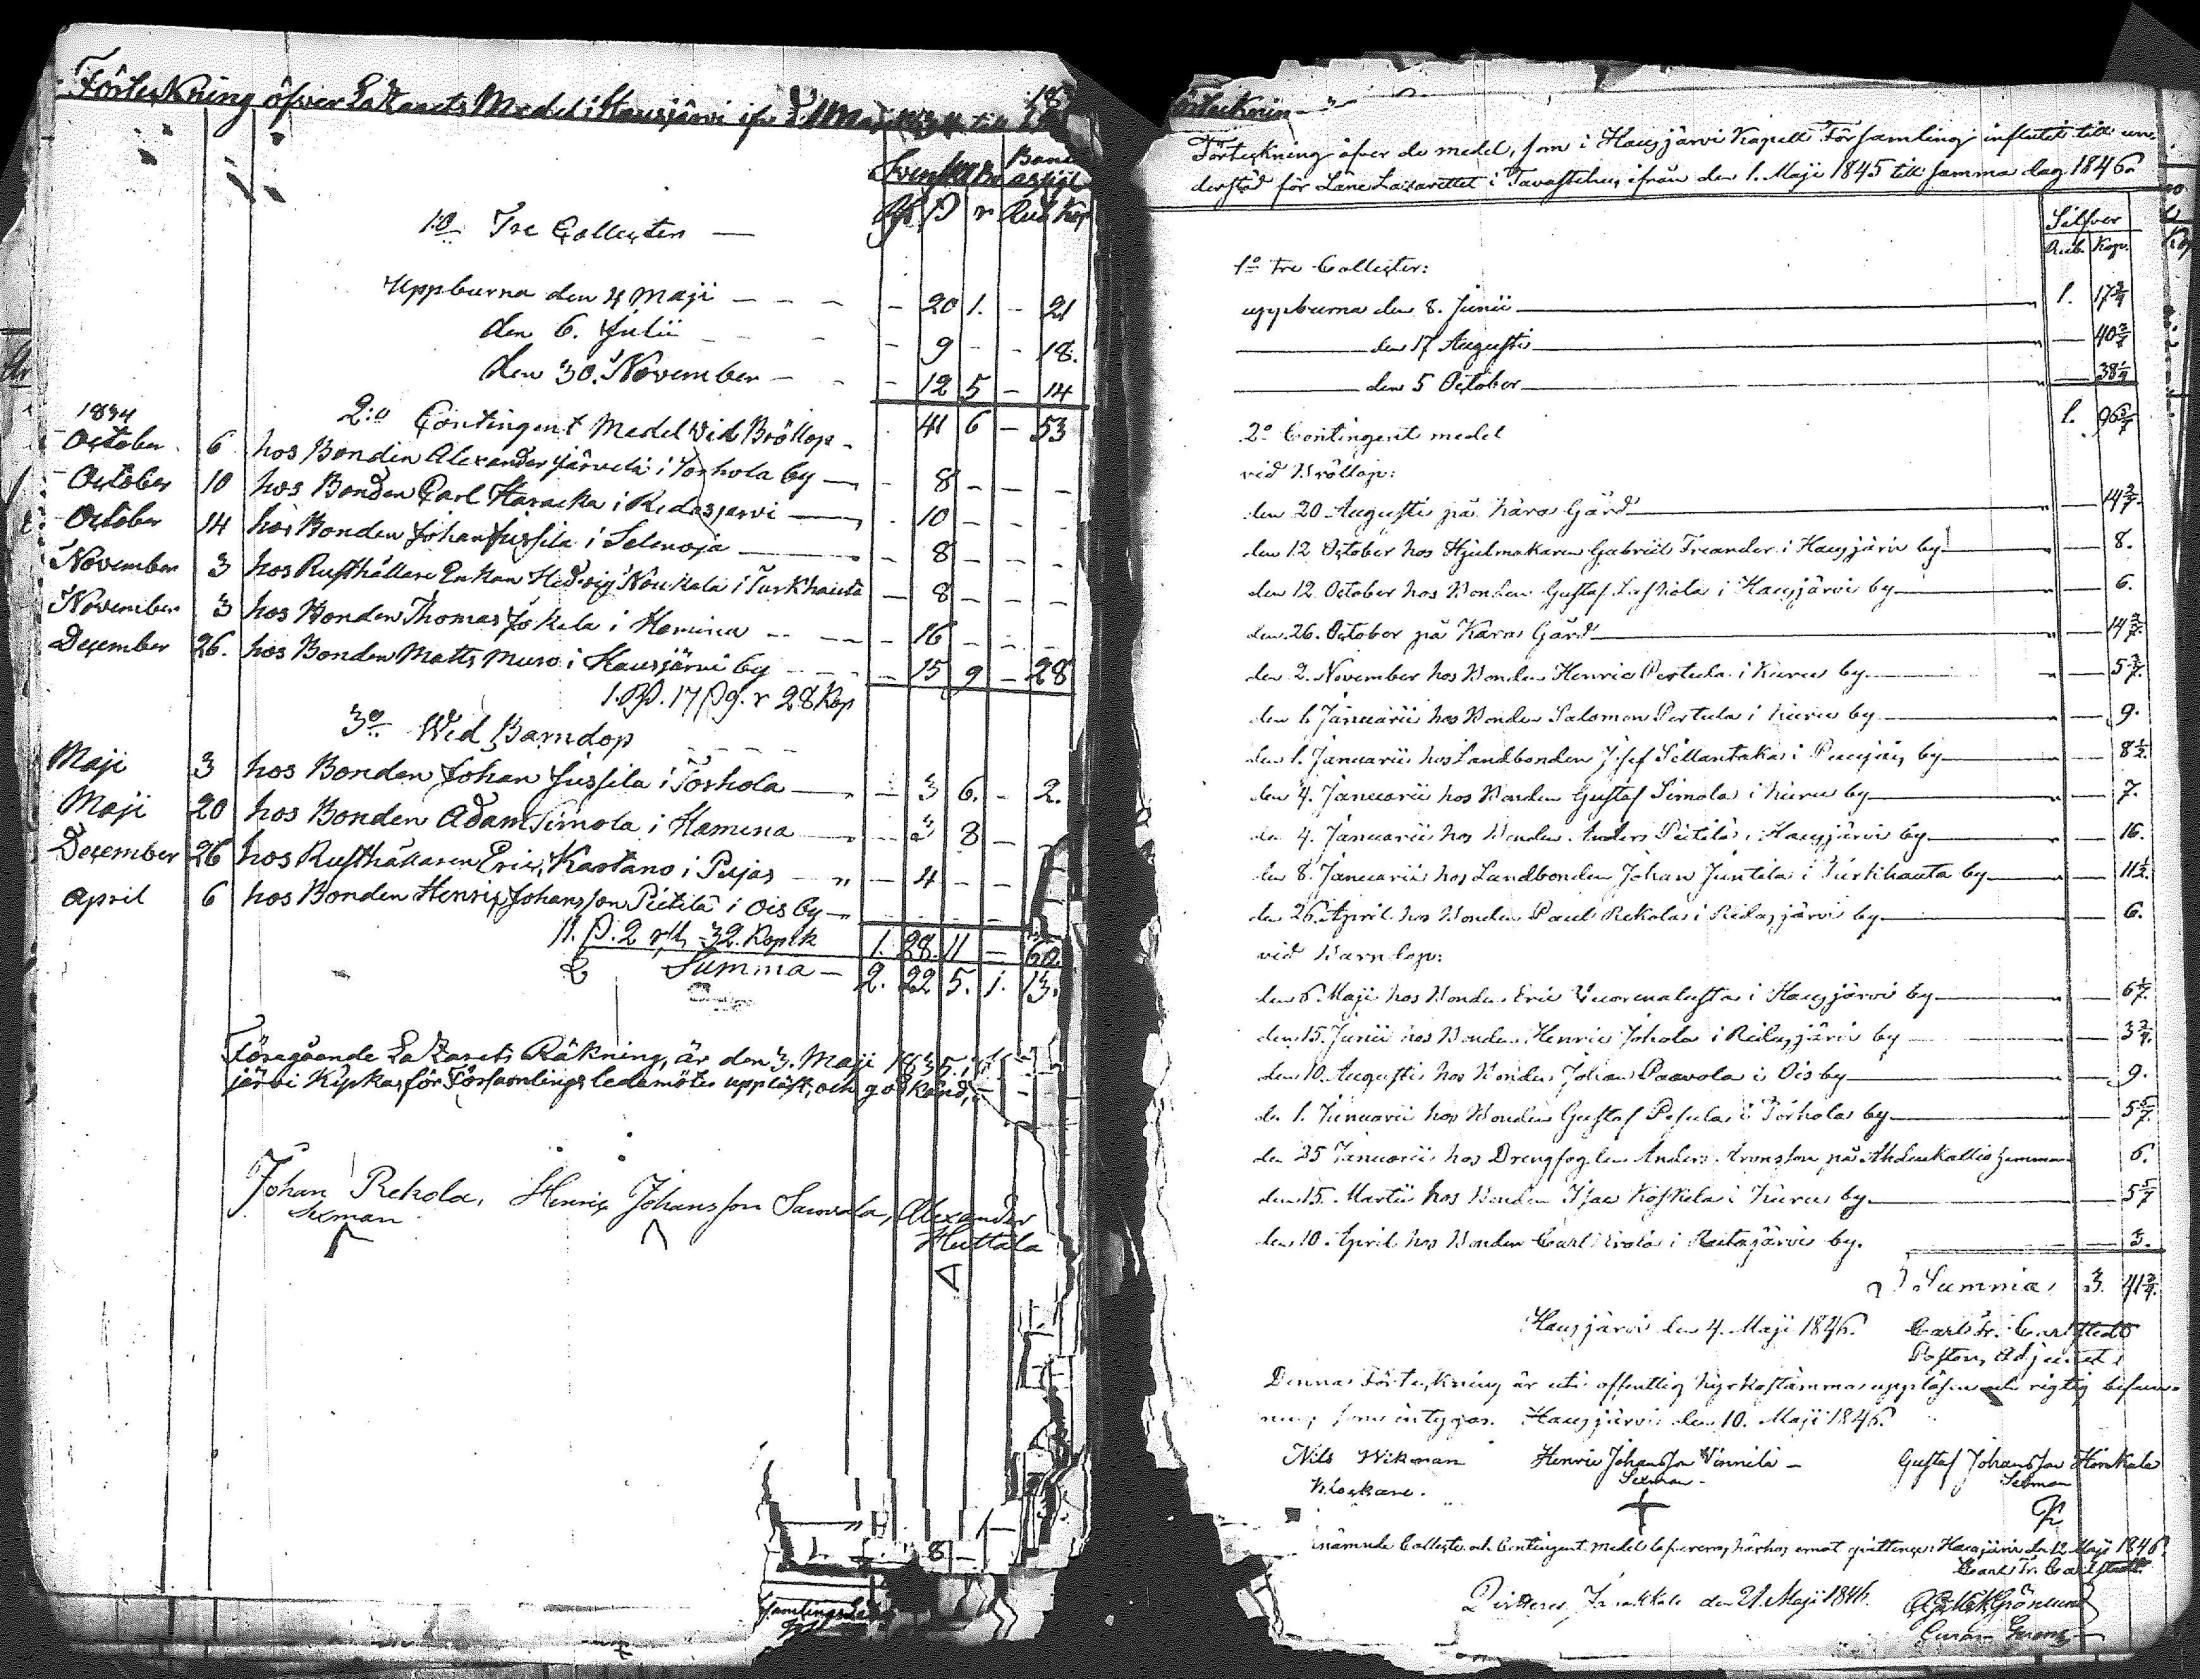 Förteckning öfver Lazarets Medel i Hausjärvi
Svenska Banco
Rd ß r Rub Kop
1:o Tre Collecter —
Uppburna den 4 Maji — — — — 20 1. — 21
den 6. Julii — — — 9 — — 18.
den 30. November — — — 12 5 — 14
41 6 — 53
2:o Contingent Medel wid Bröllop
1834
October 6 hos Bonden Alexander Järvelä i Torhola by — — 8 — — —
October 10 hos Bonden Carl Haracka i Ridasjarvi — 10 — — —
October 14 hos Bonden Johan Jussila i Selenoja — — 8 — — —
November 3 hos Rusthållare Enkan Hedvig Noukala i Turkhauta — 8 — — —
November 3 hos Bonden Thomas Jokela i Hamina — — 16 — — —
December 26. hos Bonden Matts Muro i Hausjärvi by — — 15 9 — 28
1. Rd. 17 ß 9. r 28 Kop
3:o Wid Barndop
Maji 3 hos Bonden Johan Jussila i Torhola — — 3 6. — 2.
Maji 20 hos Bonden Adam Simola i Hamina — — 3 8 — —
December 26 hos Rusthållaren Eric Kartano i Pujas — „ — 4 — — —
April 6 hos Bonden Henric Johansson Pietilä i Ois by — „
11. ß. 2 r 32. Kopek 1. 28. 11 — 60.
Summa — 2. 22 5. 1. 13.
Föregående Lazarets Räkning, är den 3. Maji 1835.
järvi Kyrkas för Församlings ledamöter uppläst, och godkänd,
Johan Rekola, Henric Johansson Saurala, Alexander
Sexman Huttala
Förteckning öfver de medel, som i Hausjärvi Kapell Församling influtit till un-
derstöd för Läne Lazarettet i Tavastehus, ifrån den 1. Maji 1845 till samma dag 1846.
Silfver
Rub. Kop.
1:o Tre Collecter:
uppburna den 8. Junii — 1. 17 3/7
— den 17 Augusti — 40 3/7
— den 5 October — 38 1/7
1. 96 3/7
2:o Contingent medel
vid Bröllop:
den 20 Augusti på Karas Gård — 14 2/7.
den 12 October hos Hjulmakaren Gabriel Treander i Hausjärvi by — 8.
den 12 October hos Bonden Gustaf i Hausjärvi by — 6.
den 26. October på Karas Gård — 14 2/7.
den 2. November hos Bonden Henric Pertula i Kuru by — 5 5/7.
den 6 Januarii hos Bonden Salomon Pertula i Kuru by — 9.
den 1. Januarii hos Landbonden Josef Sillantaka i by — 8 1/2.
den 4. Januarii hos Bonden Gustaf Simola i Kuru by — 7.
den 4. Januarii hos Bonden Anders Pietilä i Hausjärvi by — 16.
den 8. Januarii hos Landbonden Johan Juntila i Turkhauta by — 11 1/2.
den 26. April hos Bonden Paul Rekola i Ridasjärvi by — 6.
vid Barndop:
den 6. Maji hos Bonden Eric Vuorenalusta i Hausjärvi by — 6 4/7.
den 15. Junii hos Bonden Henric Johola i Ridasjärvi by — 3 3/7.
den 10. Augusti hos Bonden Johan Paavola i Ois by — 9.
den 1. Januarii hos Bonden Gustaf i Torhola by — 5 5/7.
den 25 Januarii hos Drengfogden Anders Aronsson på Ahdenkallio hemman 6.
den 15. Martii hos Bonden Isac Koskela i Kuru by — 5 5/7
den 10. April hos Bonden Carl i Ridasjärvi by. — 3.
Summa 3. 41 3/7.
Hausjärvi den 4. Maji 1846. Carl Fr. Carlstedt
Pastors Adjunct
Denna Förteckning är uti offentlig Kyrkostämma uppläsen och rigtig befun-
nen; som intygas. Hausjärvi den 10. Maji 1846.
Nils Wikman Henric Johansson Vinnilä — Gustaf Johansson Honkala
Klockare. Sexman — Sexman
nämnde Collecte och Contingent medel levereras härhos emot quittence; Hausjärvi den 12 Maji 1846.
Carl Fr. Carlstedt.
Janakkala den 21. Maji 1846.
Grönlund